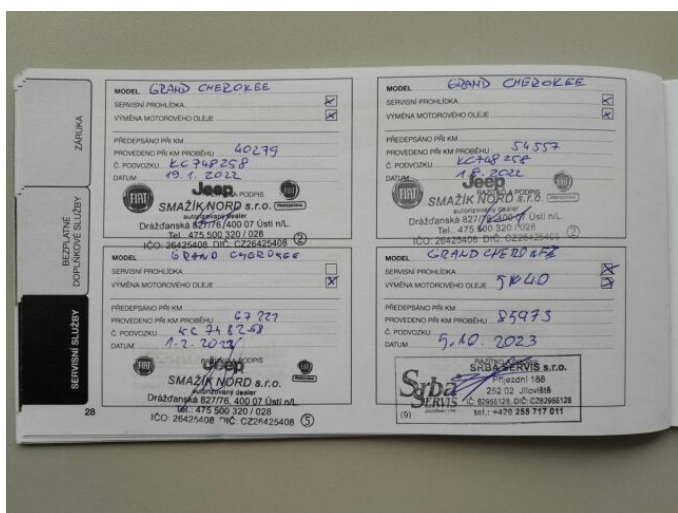 ZÁRUKA
BEZPLATNÉ
DOPLŇKOVÉ SLUŽBY
SERVISNÍ SLUŽBY
28
MODEL GRAND CHEROKEE
SERVISNÍ PROHLÍDKA
VÝMĚNA MOTOROVÉHO OLEJE
PŘEDEPSÁNO PŘI KM
PROVEDENO PŘI KM PROBĚHU 40279
Č. PODVOZKU KC748258
DATUM 19.1. 2022
RAZÍTKO A PODPIS
FIAT
Jeep
SMAŽÍK NORD s.r.o.
autorizovaný dealer
Drážďanská 827/76, 400 07 Ústí n/L.
Tel.: 475 500 320 / 028
IČO: 26425408 DIČ: CZ26425408 2
MODEL GRAND CHEROKEE
SERVISNÍ PROHLÍDKA
VÝMĚNA MOTOROVÉHO OLEJE
PŘEDEPSÁNO PŘI KM
PROVEDENO PŘI KM PROBĚHU 54557
Č. PODVOZKU KC748258
DATUM 1.8. 2022
RAZÍTKO A PODPIS
FIAT
Jeep
SMAŽÍK NORD s.r.o.
autorizovaný dealer
Drážďanská 827/76, 400 07 Ústí n/L.
Tel.: 475 500 320 / 028
IČO: 26425408 DIČ: CZ26425408
MODEL GRAND CHEROKEE
SERVISNÍ PROHLÍDKA
VÝMĚNA MOTOROVÉHO OLEJE
PŘEDEPSÁNO PŘI KM
PROVEDENO PŘI KM PROBĚHU 67221
Č. PODVOZKU KC748258
DATUM 1.2. 2023
RAZÍTKO A PODPIS
Jeep
SMAŽÍK NORD s.r.o.
autorizovaný dealer
Drážďanská 827/76, 400 07 Ústí n/L.
Tel.: 475 500 320 / 028
IČO: 26425408 DIČ: CZ26425408 5
MODEL GRAND CHEROKEE
SERVISNÍ PROHLÍDKA
VÝMĚNA MOTOROVÉHO OLEJE 5W40
PŘEDEPSÁNO PŘI KM
PROVEDENO PŘI KM PROBĚHU 85973
Č. PODVOZKU
DATUM 9.10. 2023
RAZÍTKO A PODPIS
Srba SERVIS
SRBA SERVIS s.r.o.
Příjezdní 188
252 02 Jíloviště
IČ: 62955128, DIČ: CZ62955128
tel.: +420 255 717 011
(9)